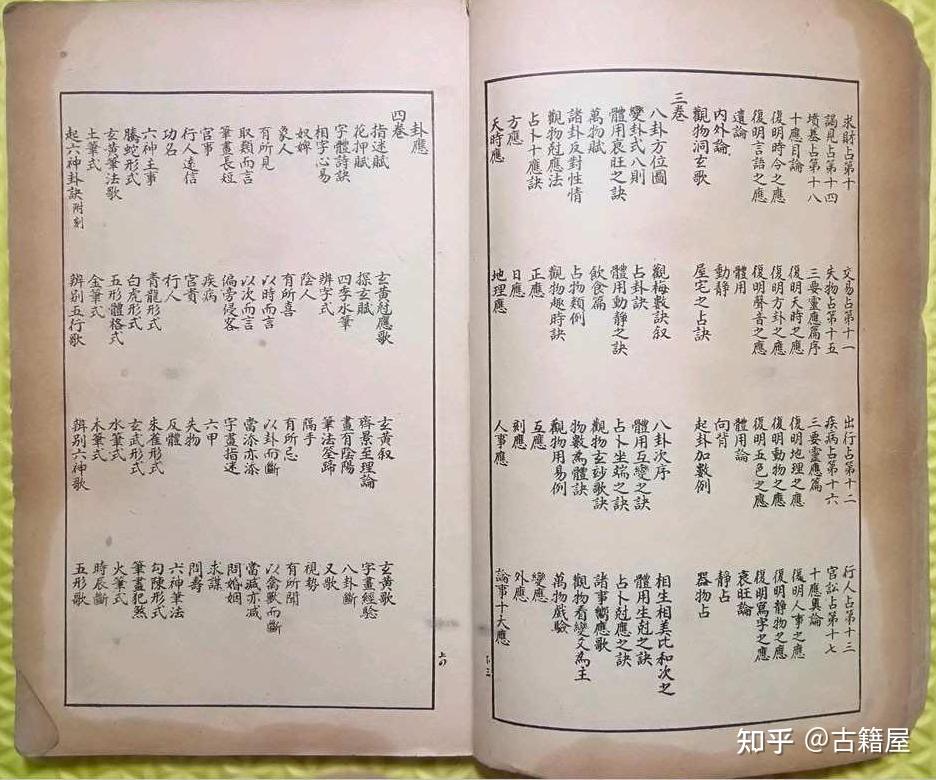 求財占第十 交易占第十一 出行占第十二 行人占第十三
謁見占第十四 失物占第十五 疾病占第十六 官訟占第十七
墳墓占第十八 三要靈應篇序 三要靈應篇 十應奧論
十應目論 復明天時之應 復明地理之應 復明人事之應
復明時令之應 復明方卦之應 復明動物之應 復明静物之應
復明言語之應 復明聲音之應 復明五色之應 復明寫字之應
遺論 體用 體用論 衰旺論
內外論 動靜 向背 靜占
觀物洞玄歌 屋宅之占訣 起卦加數例 器物占
三卷
八卦方位圖 觀梅數訣叙 八卦次序 相生相美比和次之
變卦式八則 占卦訣 體用互變之訣 體用生剋之訣
體用衰旺之訣 體用動靜之訣 占卜坐端之訣 占卜剋應之訣
萬物賦 飲食篇 觀物玄玅歌訣 諸事響應歌
諸卦反對性情 占物類例 物數為體訣 觀物看變爻為主
觀物剋應法 觀物趣時訣 觀物用易例 萬物戲驗
占卜十應訣 正應 互應 變應
方應 日應 刻應 外應
天時應 地理應 人事應 論事十大應
卦應
四卷
指迷賦 玄黃剋應歌 玄黃叙 玄黃歌
花押賦 探玄賦 齊景至理論 字畫經驗
字體詩訣 四季水筆 畫有陰陽 八卦斷
相字心易 辨字式 筆法筌蹄 又歌
奴婢 陰人 隔手 視勢
象人 有所喜 有所忌 有所聞
有所見 以時而言 以卦而斷 以禽獸而斷
取類而言 以次而言 當添亦添 當減亦減
筆畫長短 偏旁侵客 字畫指迷 問婚姻
官事 疾病 六甲 求謀
行人遠信 官貴 失物 問壽
功名 行人 反體 六神筆法
六神主事 青龍形式 朱雀形式 勾陳形式
騰蛇形式 白虎形式 玄武形式 筆畫犯煞
玄黃筆法歌 五形體格式 水筆式 火筆式
土筆式 金筆式 木筆式 時辰斷
起六神卦訣附刻 辨別五行歌 辨別六神歌 五形歌
知乎 @古籍屋